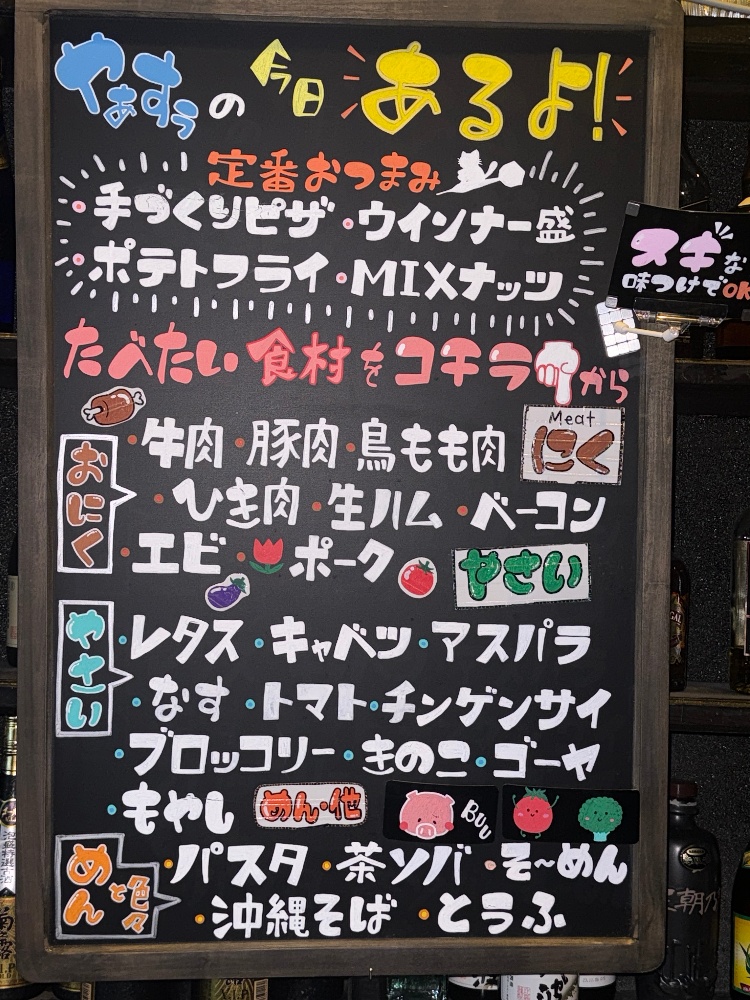 やぁすぅの今日あるよ!
定番おつまみ
・手づくりピザ・ウインナー盛
・ポテトフライ・MIXナッツ
スキな
味つけでOK
たべたい食材をコチラから
・牛肉・豚肉・鳥もも肉
Meat
にく
おにく
・ひき肉・生ハム・ベーコン
・エビ・ポーク
やさい
やさい
・レタス・キャベツ・アスパラ
・なす・トマト・チンゲンサイ
・ブロッコリー・きのこ・ゴーヤ
・もやし
めん・他
BUU
めんと色々
・パスタ・茶ソバ・そ〜めん
・沖縄そば・とうふ